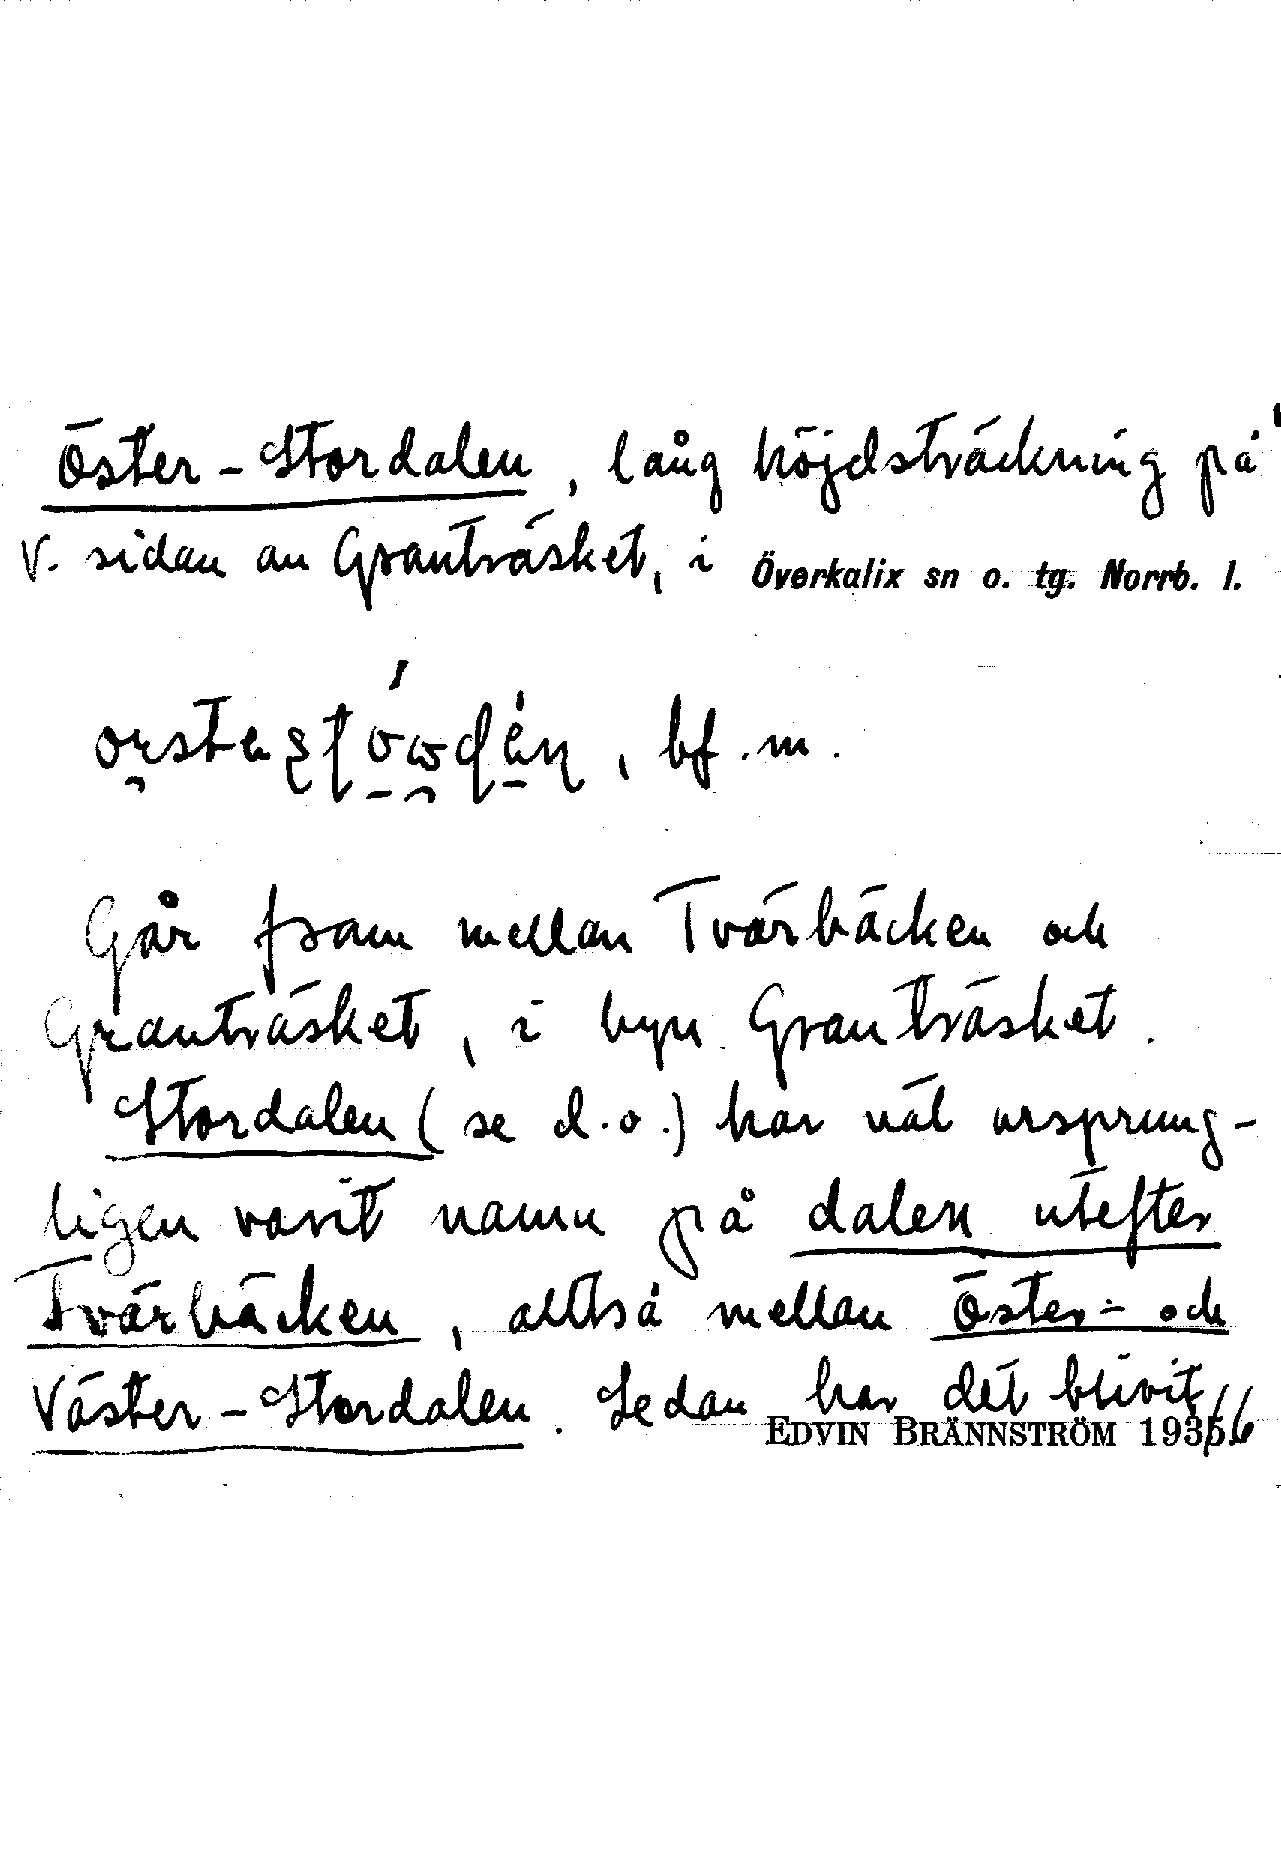 Öster-Stordalen, lång höjdsträckning på
v. sidan av Granträsket, i Överkalix sn o. tg. Norrb. l.
bf. m.
Går fram mellan Tvärbäcken och
Granträsket, i byn Granträsket.
Stordalen (se d.o.) har väl ursprung-
ligen varit namn på dalen utefter
Tvärbäcken, alltså mellan Öster- och
Väster-Stordalen. Sedan har det blivit
EDVIN BRÄNNSTRÖM 1936